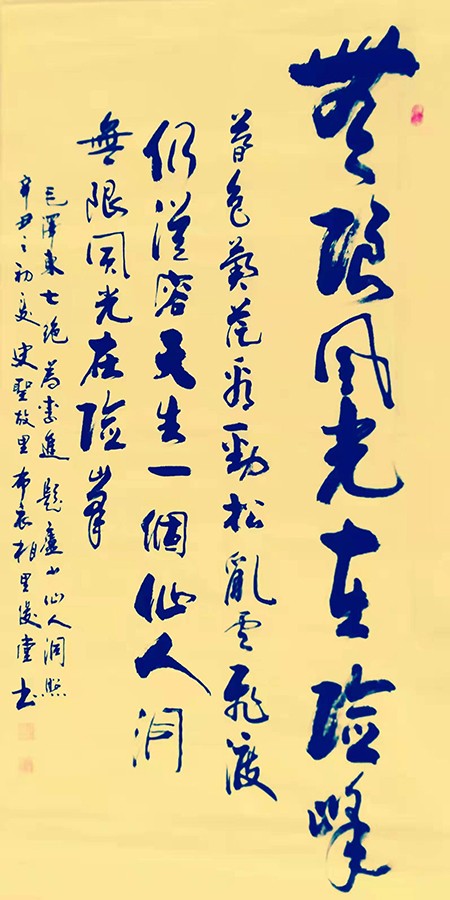 無限风光在险峰
暮色蒼茫看勁松亂雲飛渡
仍從容天生一個仙人洞
無限风光在险峯
毛澤東七絕為李進題廬山仙人洞照
辛丑之初夏史聖故里布衣相里俊堂书